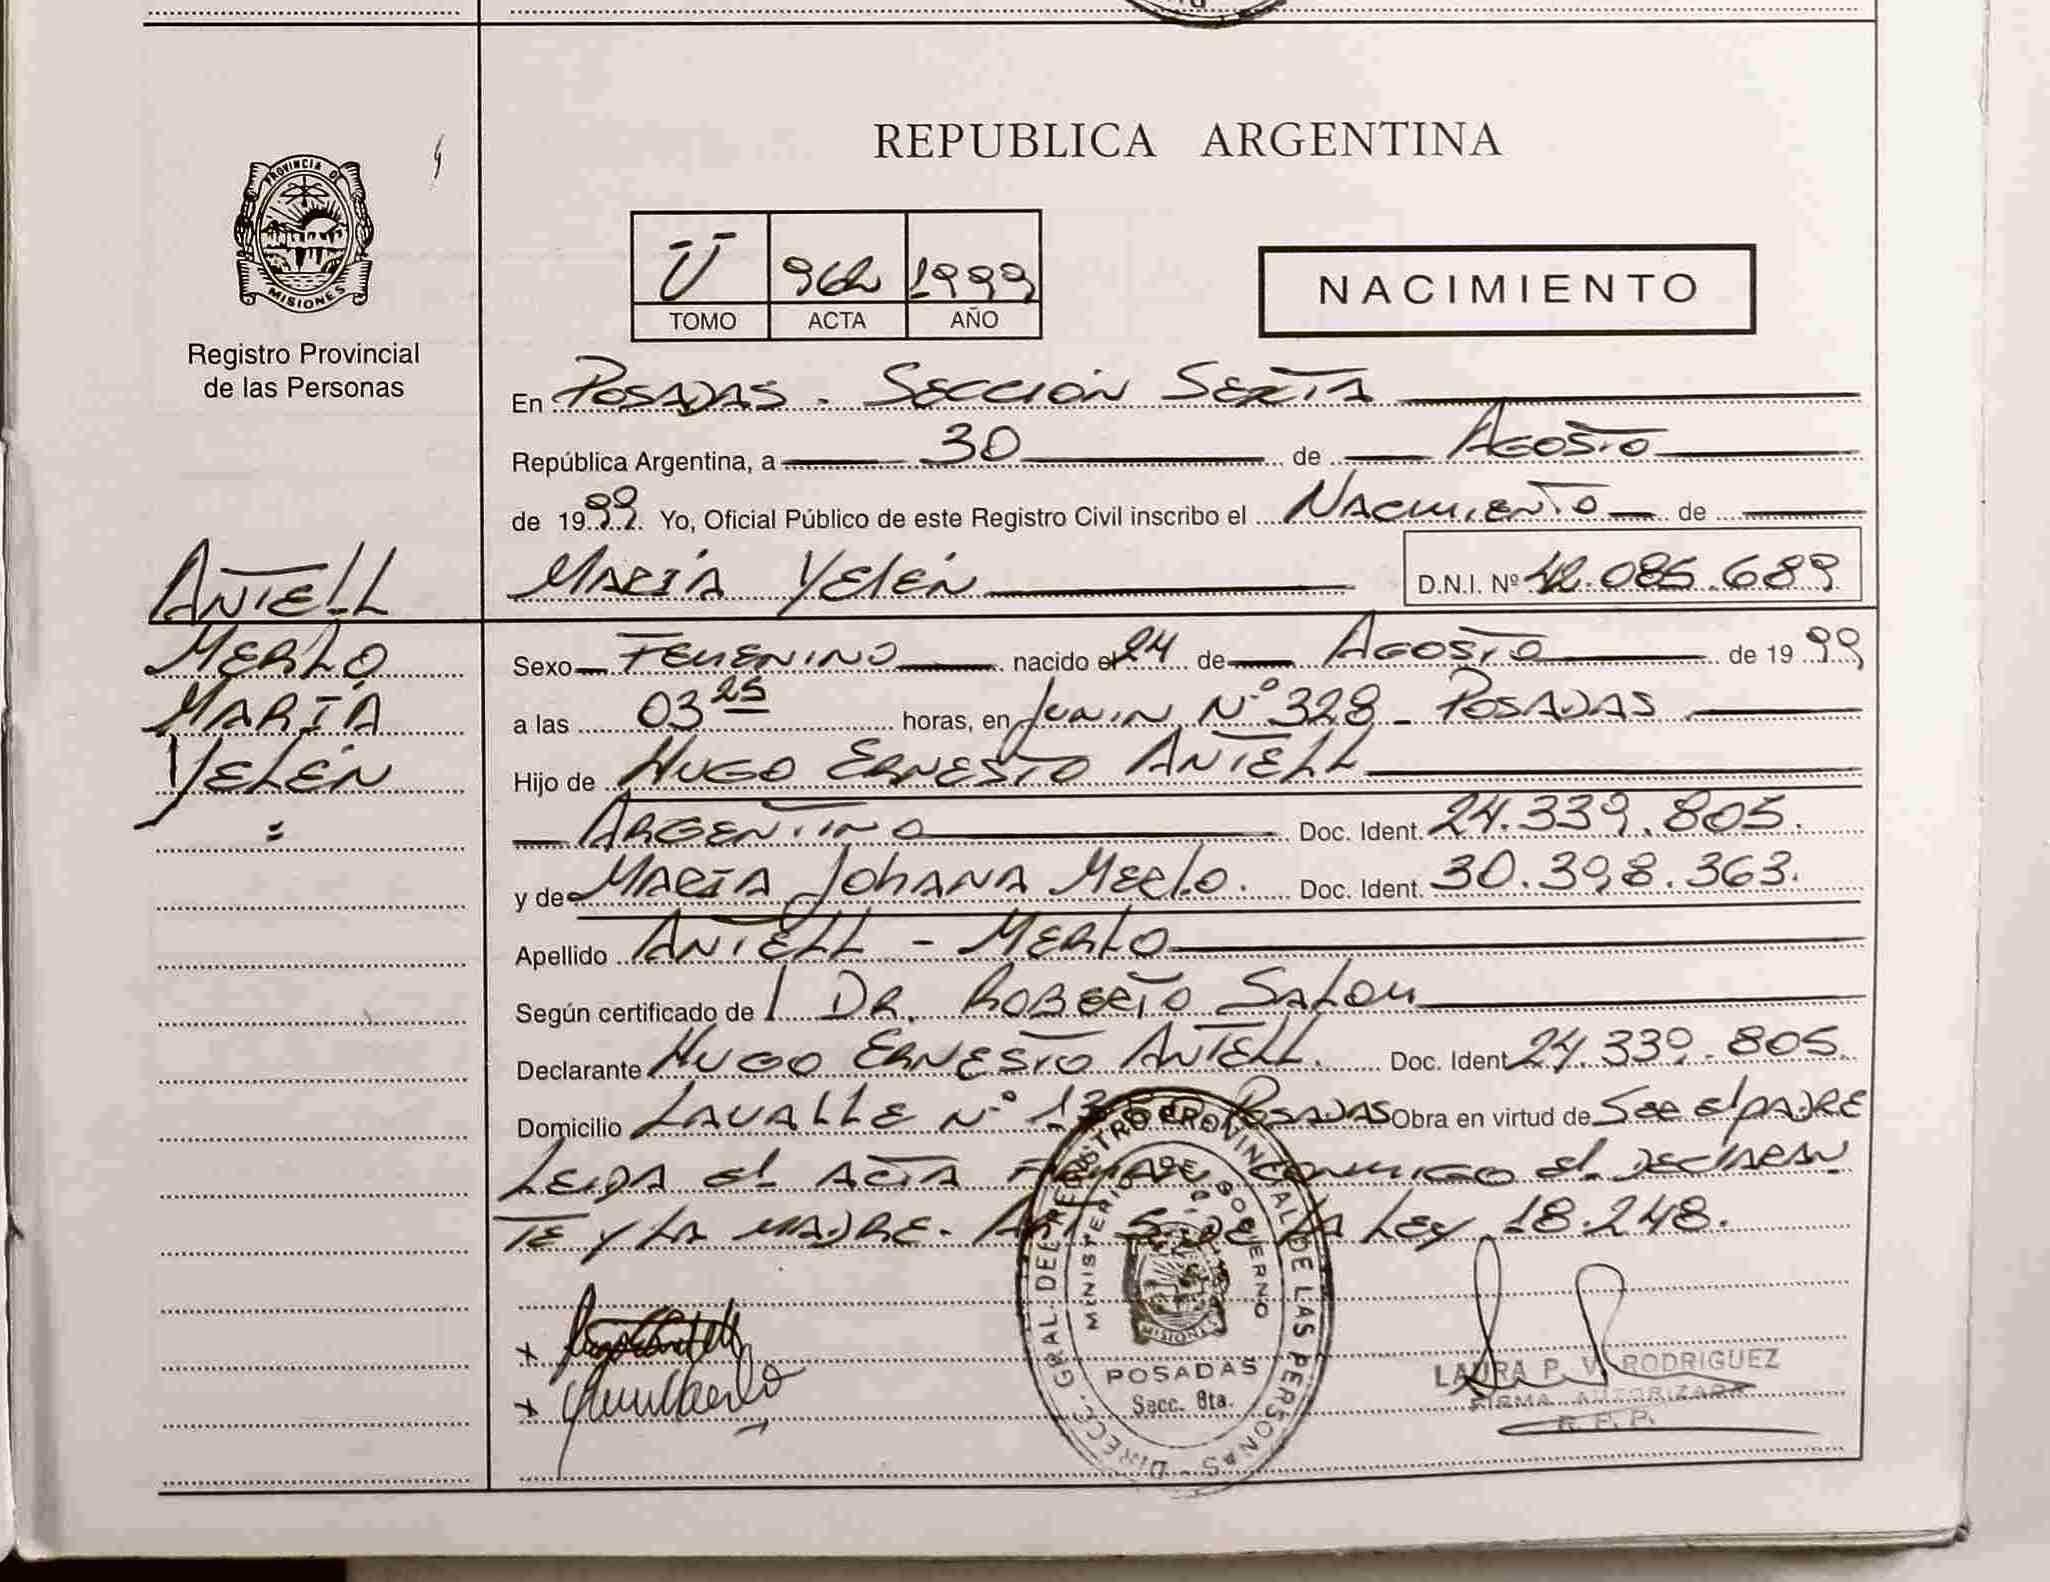 REPUBLICA ARGENTINA
PROVINCIA DE
MISIONES
Registro Provincial
de las Personas
Ū 962 1999
TOMO ACTA AÑO
NACIMIENTO
En POSADAS. SECCIÓN SEXTA
República Argentina, a 30 de AGOSTO
de 1999. Yo, Oficial Público de este Registro Civil inscribo el NACIMIENTO de
MARÍA YELÉN D.N.I. Nº 42.085.689
ANTELL
MERLO
MARÍA
YELÉN
Sexo FEMENINO nacido el 24 de AGOSTO de 1999
a las 03 25 horas, en JUNIN N.º 328 - POSADAS
Hijo de HUGO ERNESTO ANTELL
ARGENTINO Doc. Ident. 24.339.805.
y de MARIA JOHANA MERLO. Doc. Ident. 30.398.363.
Apellido ANTELL - MERLO
Según certificado de DR. ROBERTO SALOM
Declarante HUGO ERNESTO ANTELL. Doc. Ident 24.339.805.
Domicilio LAVALLE N.º POSADAS Obra en virtud de SER EL PADRE
LEIDA EL ACTA FIRMAN CONMIGO EL DECLARAN
TE Y LA MADRE. ART 5 DE LA LEY 18.248.
DIRECC. GRAL DEL REGISTRO PROVINCIAL DE LAS PERSONAS
MINISTERIO DE GOBIERNO
MISIONES
POSADAS
Secc. 6ta.
LAURA P. V. RODRIGUEZ
FIRMA AUTORIZADA
R. P. P.